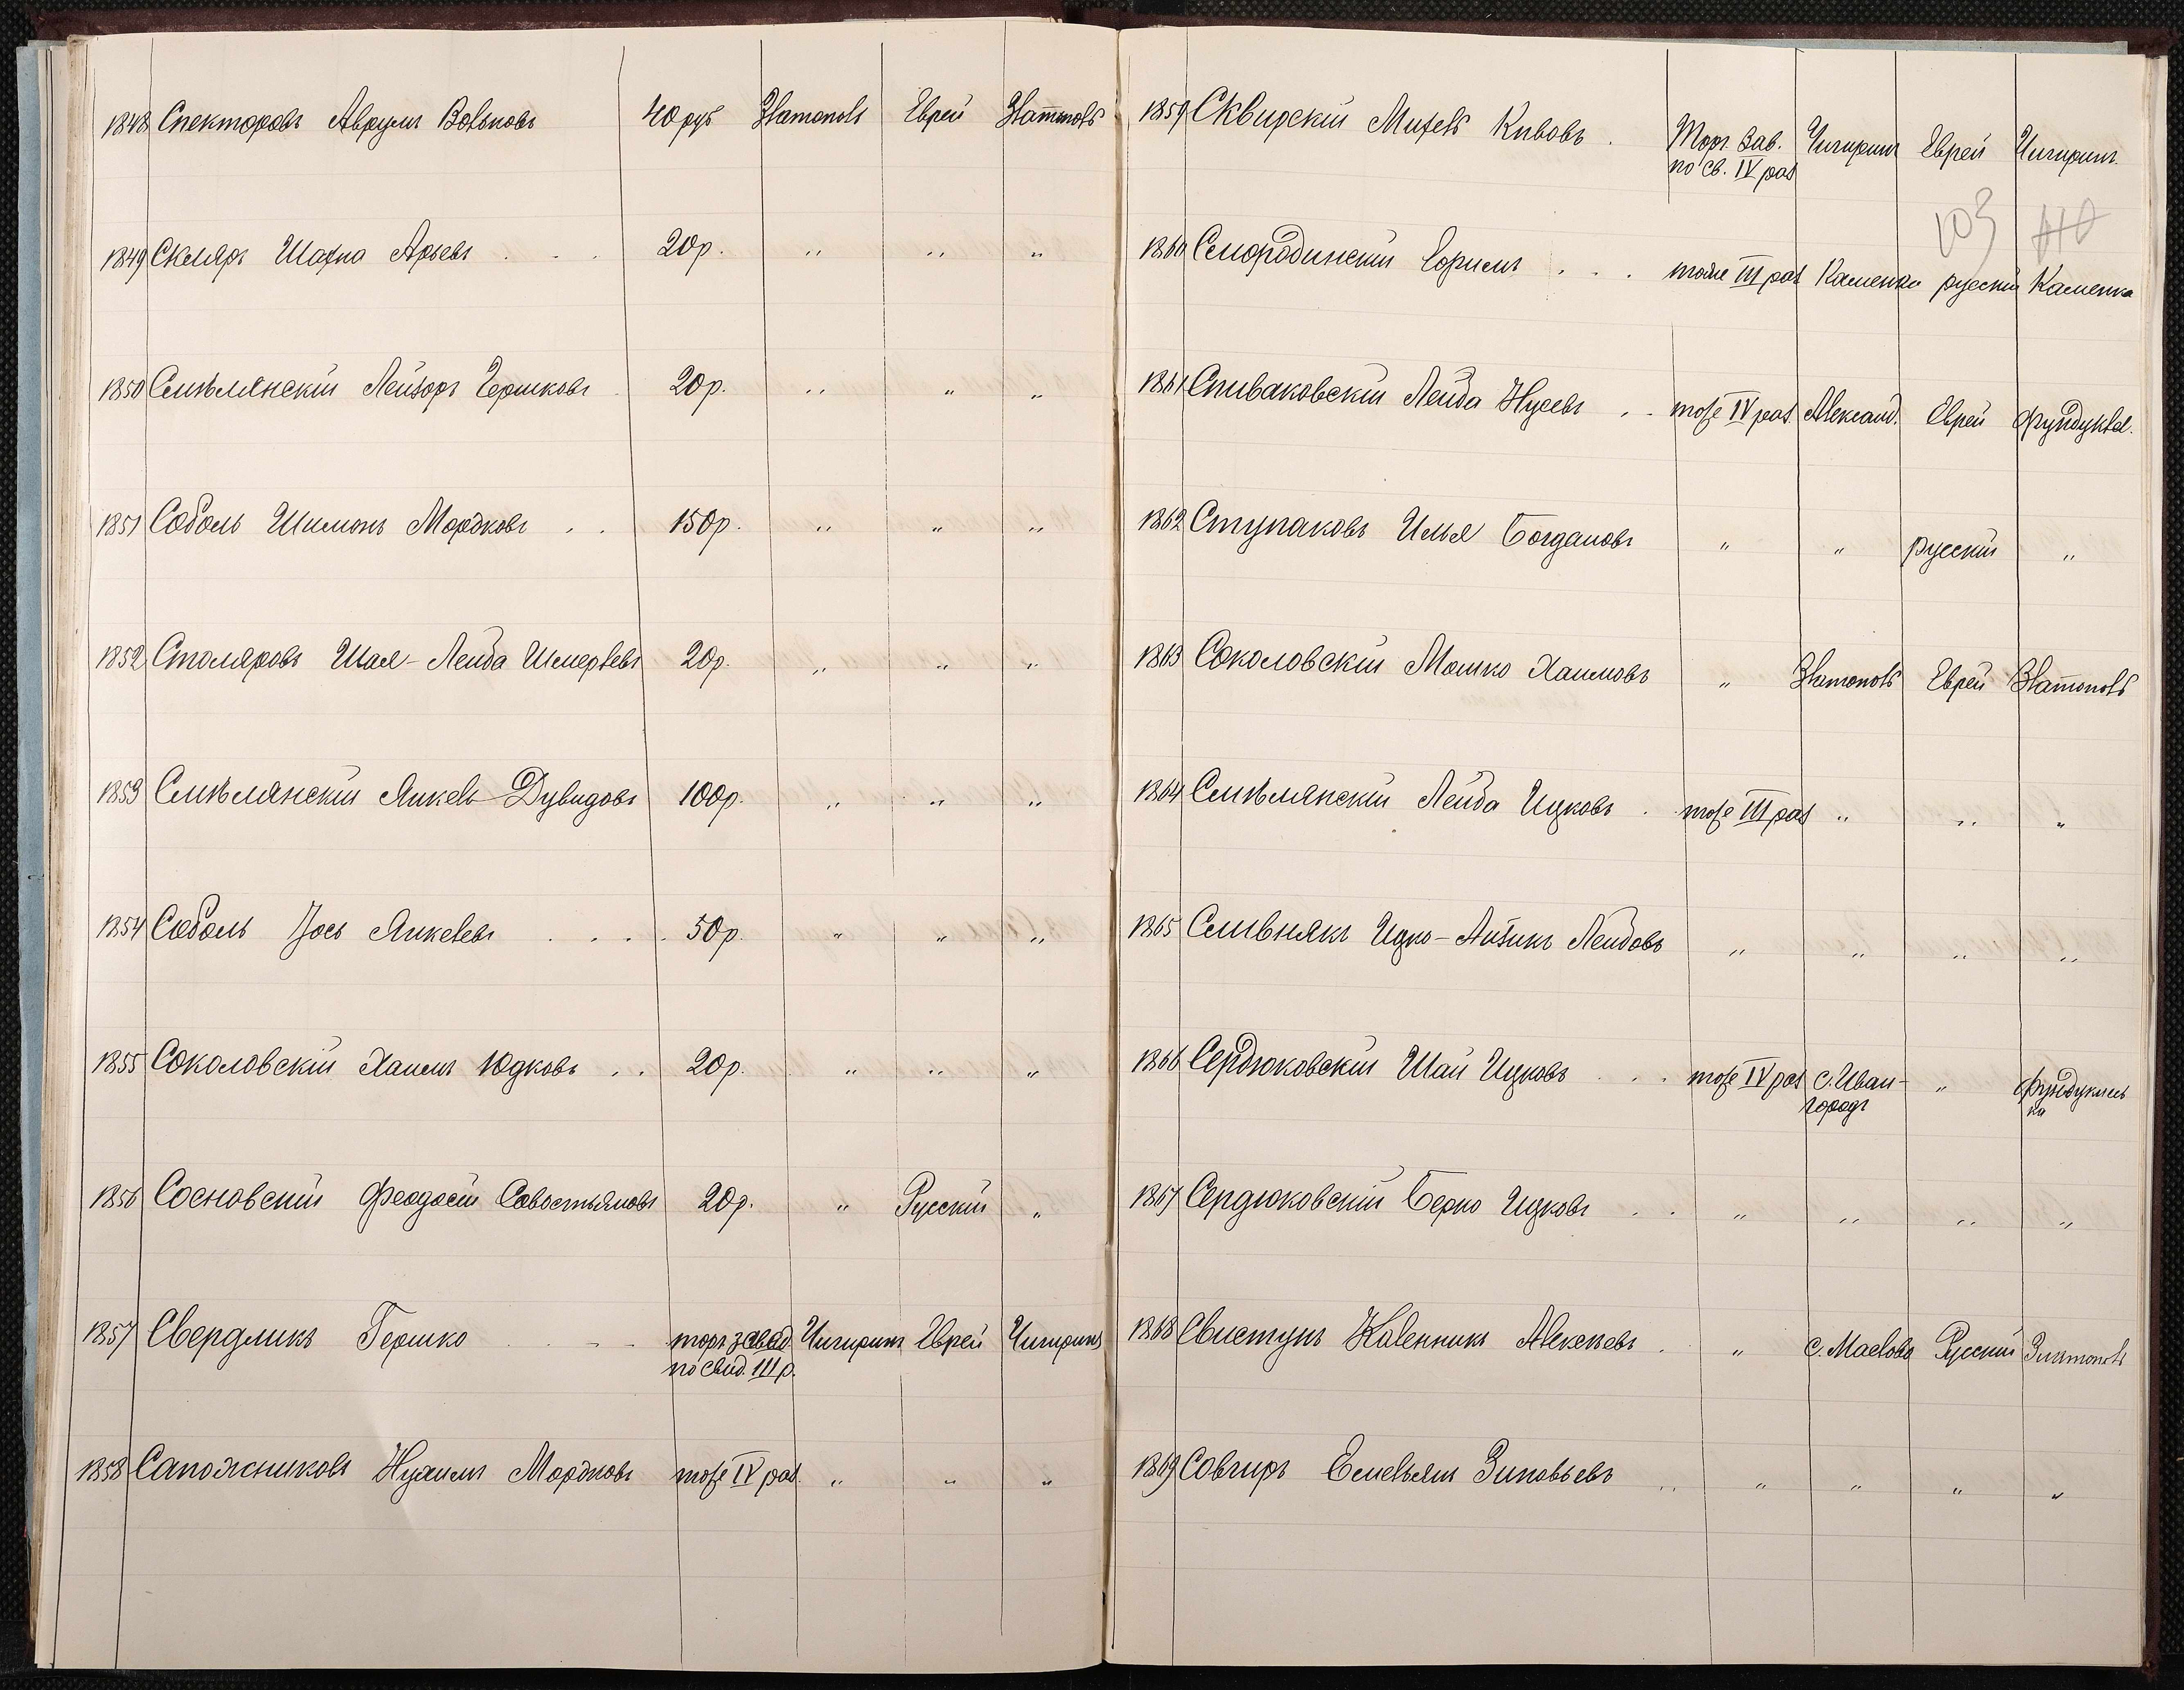 1848 Спекторовъ Аврумъ Вольковъ 40 руб Златополь Еврей Златополь
1849 Скляръ Шахна Арьевъ . . . 20р. " " "
1850 Смѣлянскій Лейзоръ Гершковъ 20р. " " "
1851 Соболь Шимонъ Мордковъ . . 150р. " " "
1852 Столяровъ Шая-Лейба Шмерлевъ 20р. " " "
1853 Смѣлянскій Янкель Дувидовъ 100р. " " "
1854 Соболь Іось Янкелевъ . . . . 50р. " " "
1855 Соколовскій Хаимъ Юдковъ . . 20р. " " "
1856 Сосновскій Феодосій Савостьяновъ 20р. " Русскій "
1857 Свердликъ Гершко торг. завед. Чигиринъ Еврей Чигиринъ
по свид. III р.
1858 Сапожниковъ Нухимъ Мордковъ тоже IV раз. " " "
1859 Сквирскій Михель Кивовъ . Торг. Зав. Чигиринъ Еврей Чигирин.
по св. IV раз
103
1860 Смородинскій Ефримъ . . . тоже III раз Каменка русскій Каменка
1861 Спиваковскій Лейба Нусевъ . . тоже IV раз. Александ. Еврей Фундукл.
1862 Ступаковъ Илья Богдановъ " " русскій "
1863 Соколовскій Мошко Хаимовъ " Златополь Еврей Златополь
1864 Смѣлянскій Лейба Ицковъ . тоже III раз " " "
1865 Сливнякъ Ицко-Айзикъ Лейбовъ " " " "
1866 Сердюковскій Шай Ицковъ . . . тоже IV раз с. Иван- " Фундуклеев
городъ ка
1867 Сердюковскій Берко Ицковъ . . " " " "
1868 Свистунъ Каленникъ Алексѣевъ . " с. Маслово Русскій Златополь
1869 Совгиръ Емельянъ Зиновьевъ . . " " " "